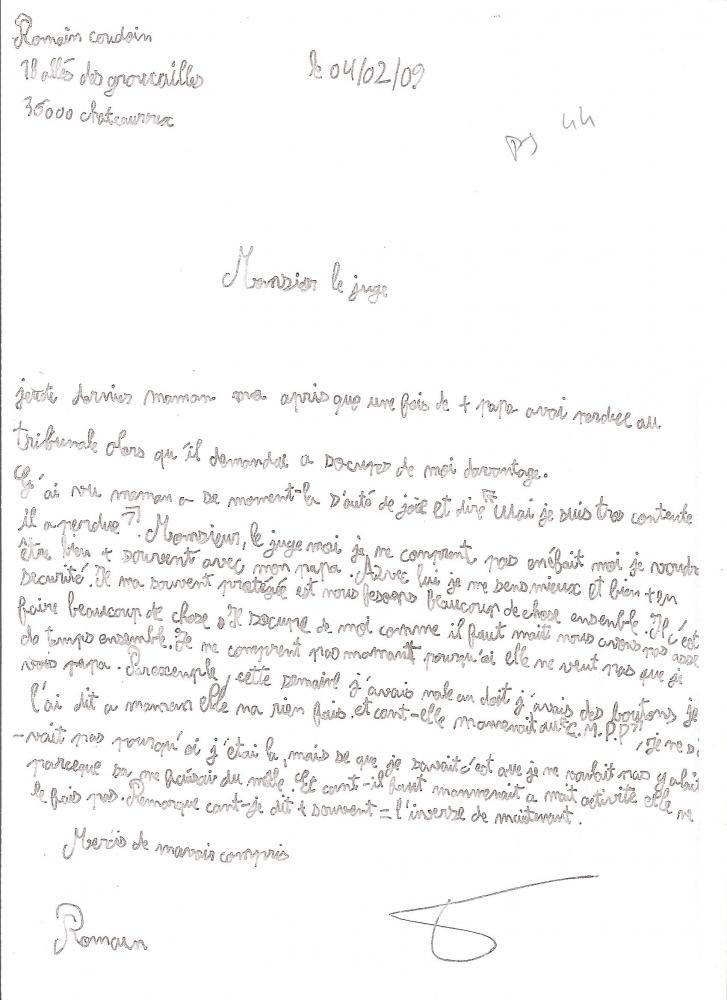 Romain coudoin
18 allés des groucailles
le 04/02/09
36000 chateauroux
Monsieur le juge
dernier maman ma apris que une fois de + papa avai perdue au
tribunale alors qu'il demandai a socups de moi davantage.
G'ai vu maman a se moment-la s'auté de joie et dire "Uai je suis tres contente
il a perdue". Monsieur, le juge moi je ne comprent pas enéfait moi je voudr
être bien + souvent avec mon papa. Azvec lui je me sens mieux et bien + en
securité. Il ma souvent protégée est nous fesons beaucoup de chose ensemble. Il c'est
faire beaucoup de chose. Il socupe de moi comme il faut mait nous avons pas asse
de temps ensemble. Je ne comprent pas maman pourqu'ai elle ne veut pas que je
vois papa. Parexemple, cette semaine j'avais male au doit j'avais des boutons je
l'ai dit a maman elle ma rien fais. et cant-elle mamenait au "C.M.P.P", je ne sa
-vait pas pourqu'oi j'étai la, mais se que je savait c'est que je ne voulait pas y alait
parceque sa me faisais du mille. Et cant-il faut mammenait a mait activité elle ne
le fais pas. Remarque cant-je dit + souvent = l'inverse de maintenant.
Mercis de mavais compris
Romain